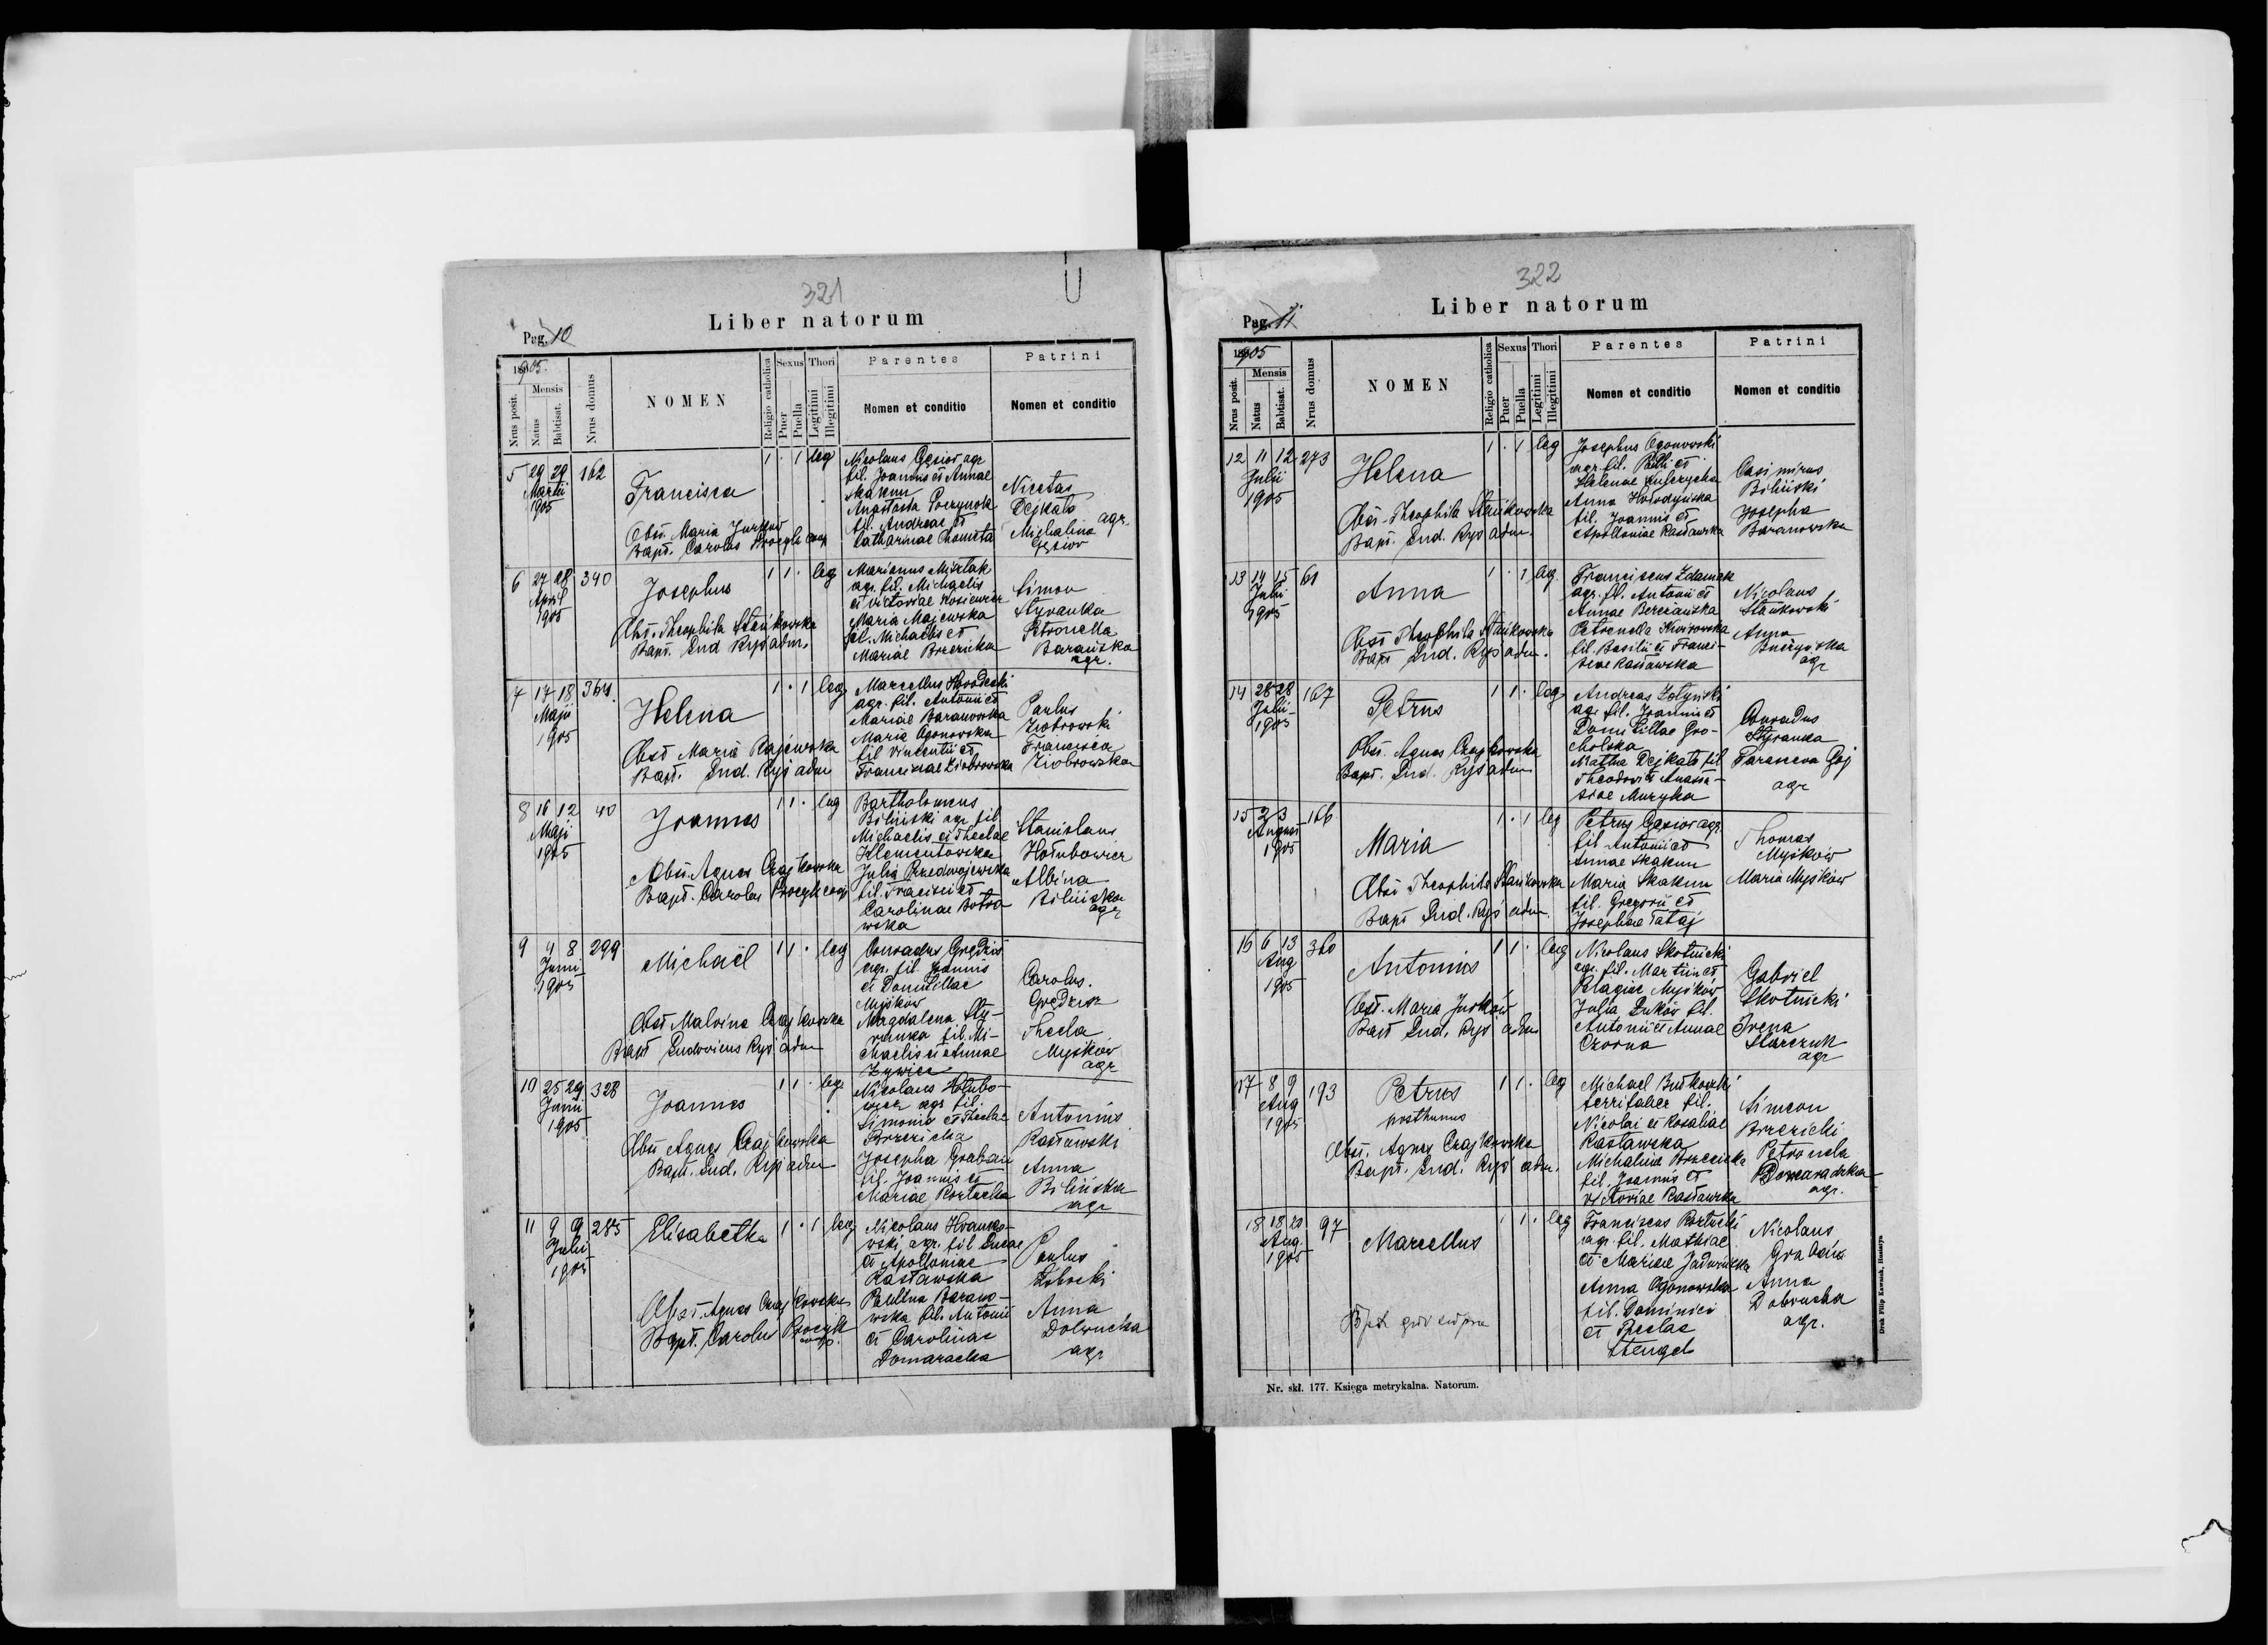 321
Liber natorum
Pag. 10
1905.
Nrus posit.
Mensis
Natus
Babtisat.
Nrus domus
NOMEN
Religio catholica
Sexus
Puer
Puella
Thori
Legitimi
Illegitimi
Parentes
Nomen et conditio
Patrini
Nomen et conditio
5 29 29 162
Martii
1905
Francisca
1 · 1 leg
Obst. Maria Jurków
Bapt. Carolus Procyk coop
Nicolaus Gęsior agr
fil. Joannis et Annae
Skakun
Anastasia
fil. Andreae et
Catharinae
Nicetas
Dejkało
Michalina agr.
Gęsior
6 27 28 340
April
1905
Josephus
1 1 · leg
Obst. Theophila Stańkowska
Bapt. Lud Ryś adm.
Marianus
agr. fil. Michaelis
et Victoriae
Maria Majewska
fil. Michaelis et
Mariae Brzezicka
Simon
Styranka
Petronella
Barańska
agr.
7 17 18 364
Maji
1905
Helena
1 · 1 leg
Obst Maria Rajewska
Bapt. Lud. Ryś adm
Marcellus
agr. fil. Antonii et
Mariae Baranowska
Maria Ogonowska
fil Vincentii et
Franciscae Ziobrowska
Paulus
Ziobrowski
Francisca
Ziobrowska
8 16 12 40
Maji
1905
Joannes
1 1 · leg
Obst. Agnes Czajkowska
Bapt. Carolus Procyk coop
Bartholomeus
Biliński agr fil
Michaelis et Theclae
Klementowska
Julia Przedwojewska
fil. Francisci et
Carolinae Botro
wska
Stanislaus
Hołubowicz
Albina
Bilińska
agr
9 4 8 299
Junii
1905
Michaël
1 1 · leg
Obst Malvina Czajkowska
Bapt Ludovicus Ryś adm
Conradus Grędzis
agr. fil. Joannis
et Domicillae
Myśków
Magdalena Sty-
ranka fil. Mi-
chaelis et Annae
Żywicc
Carolus.
Grędzisz
Thecla
Myśków
agr
10 25 29 328
Junii
1905
Joannes
1 1 · leg
Obst Agnes Czajkowska
Bapt. Lud. Ryś adm
Nicolaus Hołubo-
wicz agr fil.
Simonis et Theclae
Brzezicka
Josepha Graban
fil. Joannis et
Mariae Kortucka
Antonius
Rasławski
Anna
Bilińska
agr
11 9 9 285
Julii
1905
Elisabetha
1 · 1 leg
Obst. Agnes Czajkowska
Bapt. Carolus Procyk
coop.
Nicolaus Hranko-
wski agr. fil Lucae
et Apolloniae
Rasławska
Paulina Barano-
wska fil. Antonii
et Carolinae
Domaracka
Paulus
Anna
Dobrucka
agr
322
Liber natorum
Pag. 11
1905
Nrus posit.
Mensis
Natus
Babtisat.
Nrus domus
NOMEN
Religio catholica
Sexus
Puer
Puella
Thori
Legitimi
Illegitimi
Parentes
Nomen et conditio
Patrini
Nomen et conditio
12 11 12 273
Julii
1905
Helena
1 · 1 leg
Obst. Theophila Stańkowska
Bapt. Lud. Ryś adm.
Josephus Ogonowski
agr. fil. Pauli et
Helenae
Anna Hołodyńska
fil. Joannis et
Apolloniae Rasławska
Casimirus
Biliński
Josepha
Baranowska
13 14 15 61
Julii
1905
Anna
1 · 1 leg.
Obst Theophila Stańkowska
Bapt Lud. Ryś adm.
Franciscus
agr. fil. Antonii et
Annae Bereżańska
Petronella
fil. Basilii et Franci-
scae Rasławska
Nicolaus
Stańkowski
Anna
agr
14 28 28 167
Julii
1905
Petrus
1 1 · leg
Obst. Agnes Czajkowska
Bapt. Lud. Ryś adm
Andreas Żołyński
agr fil. Joannis et
Domicillae Gro-
cholska
Martha Dejkało fil
Theodori et Anasta-
siae Muzyka
Conradus
Styranka
Parasceva Gój
agr
15 2 3 166
August
1905
Maria
1 · 1 leg
Obst Theophila Stańkowska
Bapt Lud. Ryś adm.
Petrus Gęsior agr
fil Antonii et
Annae Skakun
Maria Skakun
fil. Gregorii et
Josephae Tataj
Thomas
Myśków
Maria Myśków
16 6 13 360
Aug
1905
Antonius
1 1 · leg
Obst. Maria Jurków
Bapt Lud. Ryś adm
Nicolaus Skotnicki
agr. fil. Martini et
Pelagiae Myśków
Julia Luków fil.
Antonii et Annae
Czorna
Gabriel
Skotnicki
Irena
Starczuk
agr
17 8 9 193
Aug
1905
Petrus
posthumus
1 1 · leg
Obst. Agnes Czajkowska
Bapt. Lud. Ryś adm.
Michael Butkowski
ferrifaber fil.
Nicolai et Rosaliae
Rasławska
Michalina Brzezicka
fil. Joannis et
Victoriae Rasławska
Simeon
Brzezicki
Petronela
agr.
18 18 20 97
Aug.
1905
Marcellus
1 1 · leg
Franciscus Kortucki
agr. fil. Mathiae
et Mariae
Anna Ogonowska
fil. Dominici
et Theclae
Stengel
Nicolaus
Graban
Anna
Dobrucka
agr.
Nr. skł. 177. Księga metrykalna. Natorum.
Druk Filip Kawniuk, Husiatyn